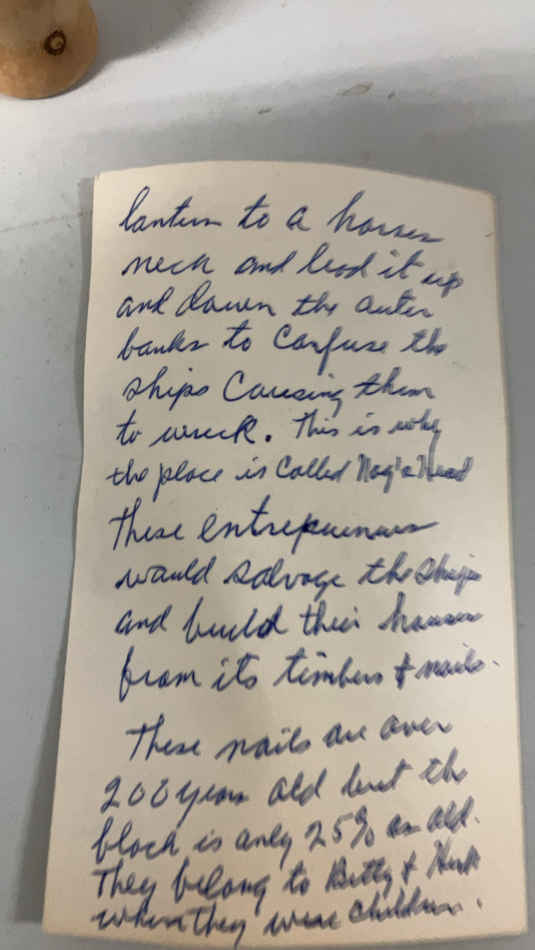 lantern to a horses
neck and lead it up
and down the outer
banks to confuse the
ships causing them
to wreck. This is why
the place is called Nag's Head
These entrepreneurs
would salvage the ships
and build their houses
from its timbers & nails.
These nails are over
200 years old but the
block is only 25% as old.
They belong to Betty &
when they were children.